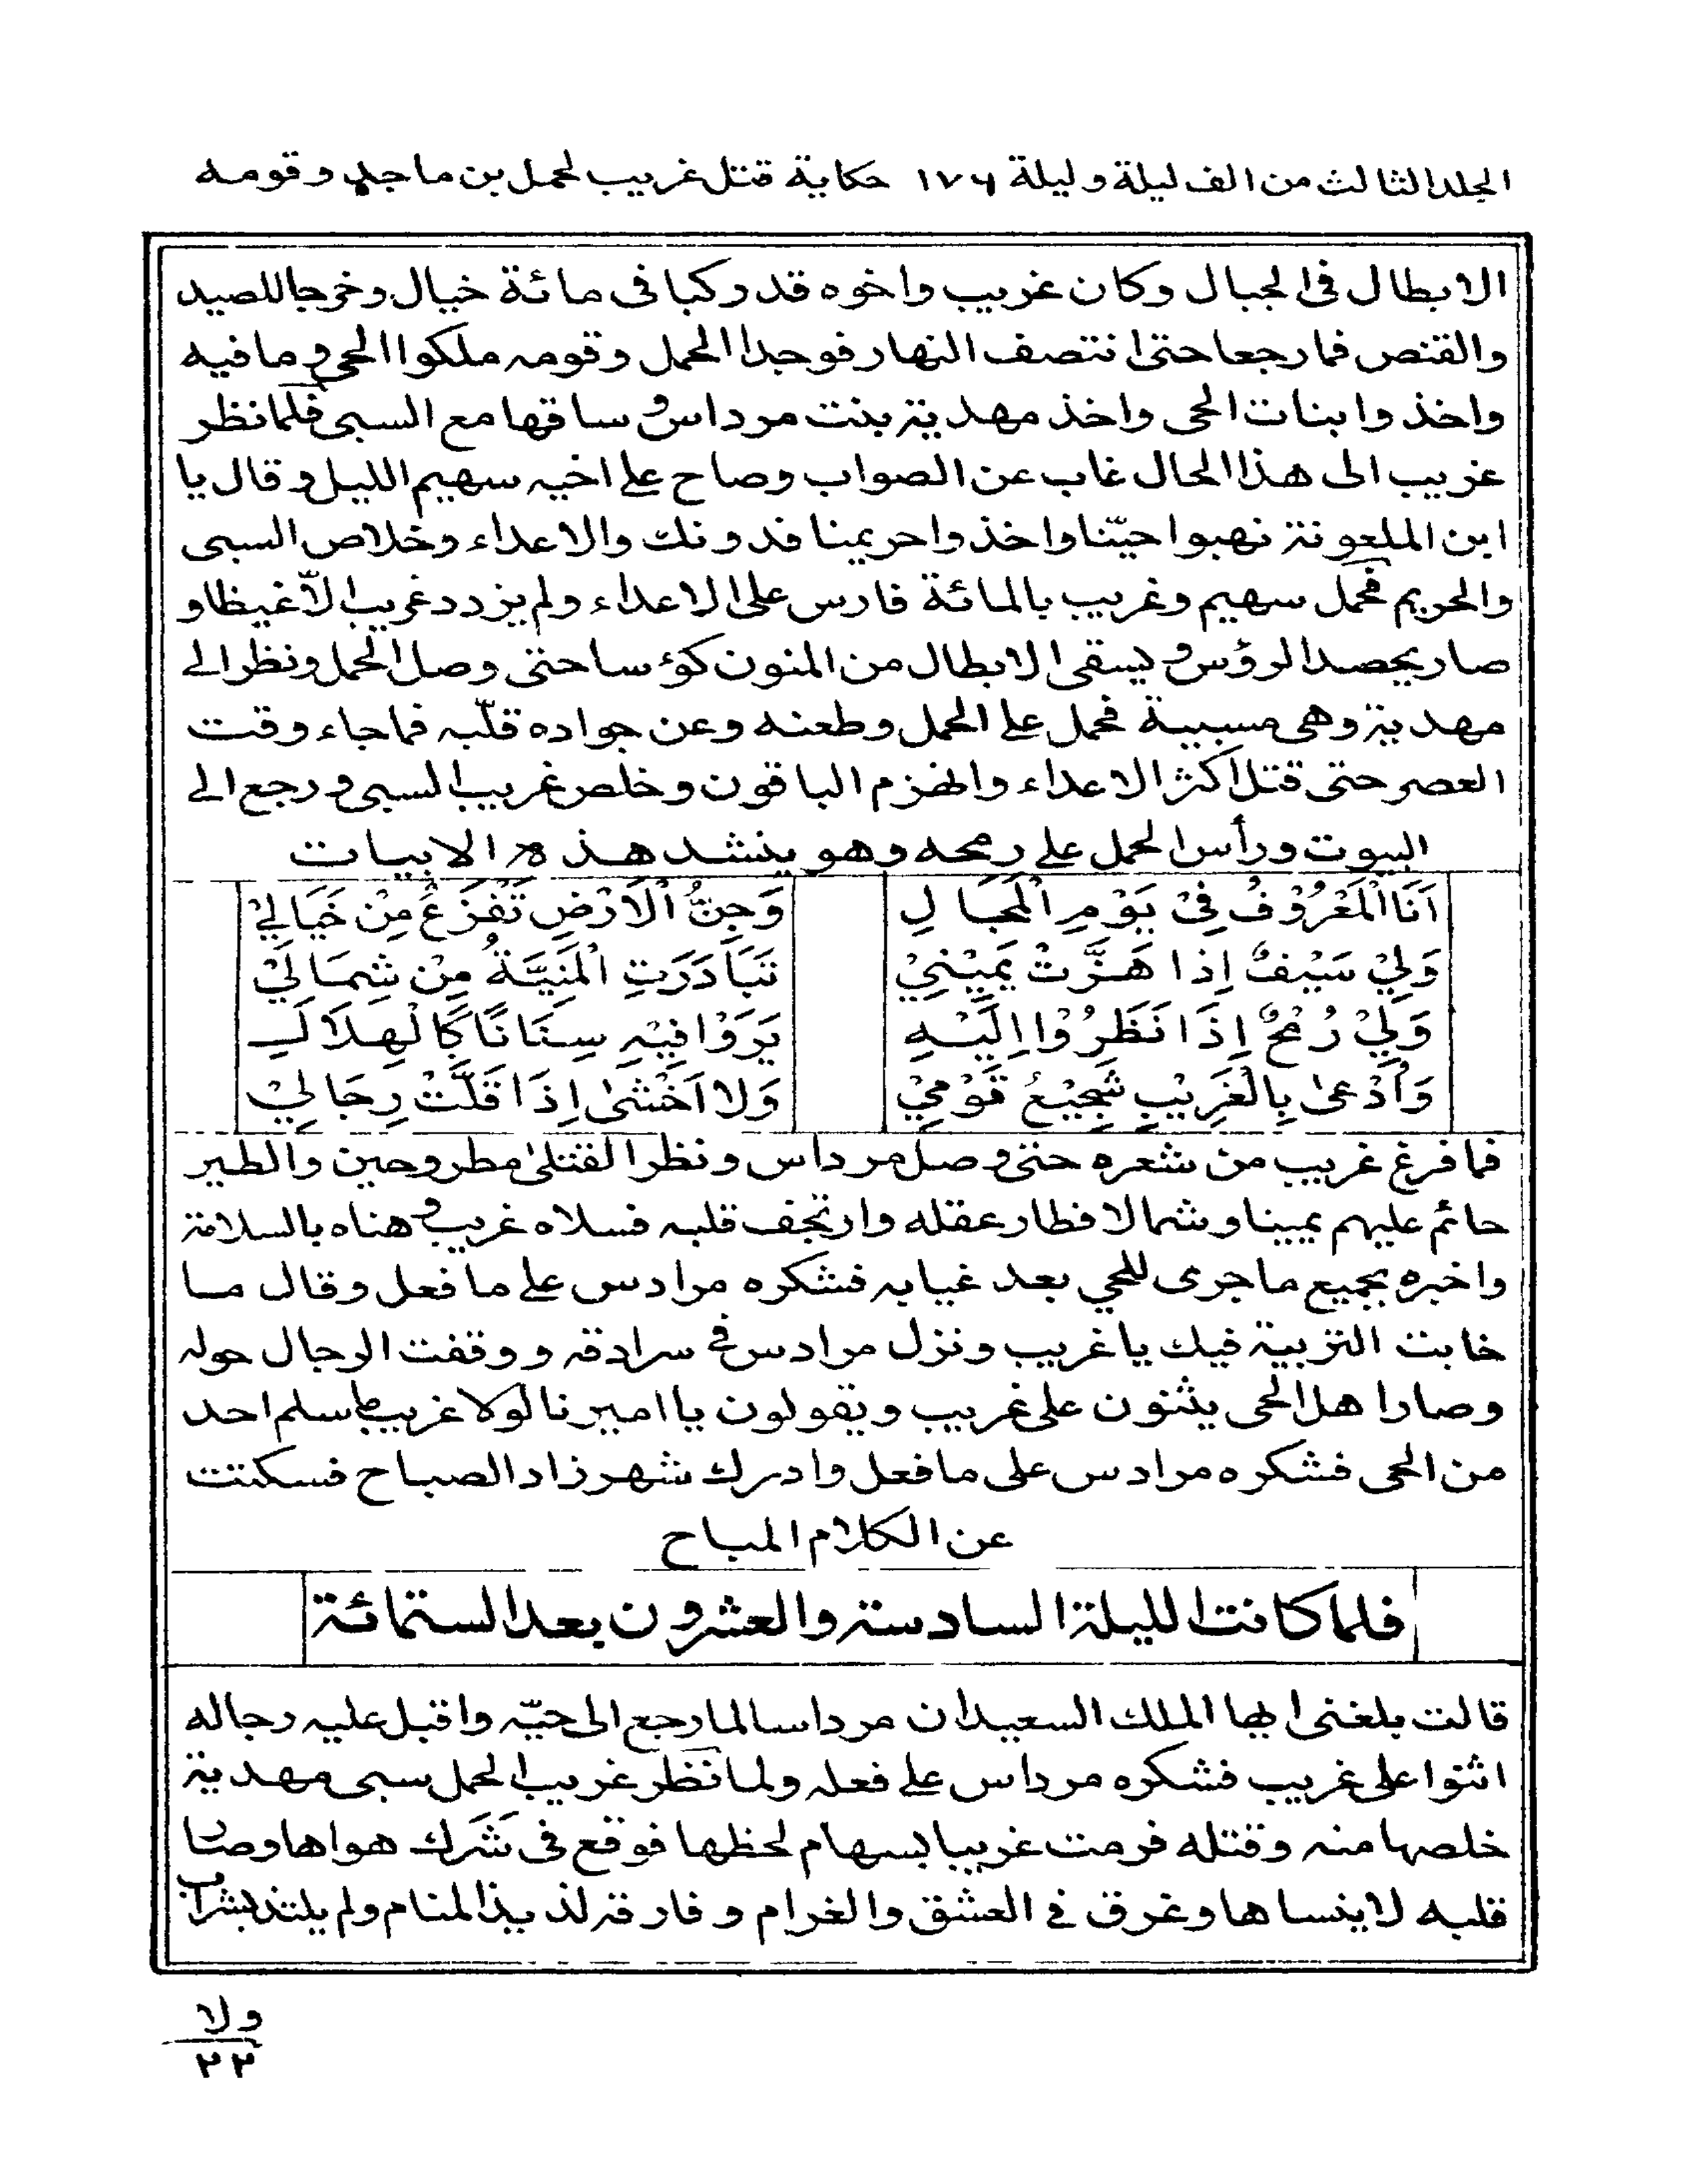 المجلد الثالث من الف ليلة وليلة ١٧٦ حكاية قتل غريب لحمل بن ماجد وقومه
الابطال فى الجبال وكان غريب واخوه قد ركبا فى مائة خيال وخرجا للصيد
والقنص فما رجعا حتى انتصف النهار فوجدا الحمل وقومه ملكوا الحى وما فيه
واخذوا بنات الحى واخذ مهدية بنت مرداس وساقها مع السبى فلما نظر
غريب الى هذا الحال غاب عن الصواب وصاح على اخيه سهيم الليل وقال يا
ابن الملعونة نهبوا حيّنا واخذوا حريمنا فدونك والاعداء وخلاص السبى
والحريم فحمل سهيم وغريب بالمائة فارس على الاعداء ولم يزدد غريب الّا غيظا و
صار يحصد الرؤس ويسقى الابطال من المنون كؤسا حتى وصل الحمل ونظر الى
مهدية وهى مسبية فحمل على الحمل وطعنه وعن جواده قلّبه فما جاء وقت
العصر حتى قتل اكثر الاعداء وانهزم الباقون وخلص غريب السبى ورجع الى
البيوت ورأس الحمل على رمحه وهو ينشد هذه الابيات
اَنَا الْمَعْرُوْفُ فِىْ يَوْمِ الْمَجَالِ وَجِنُّ الْاَرْضِ تَفْزَعُ مِنْ خَيَالِيْ
وَلِيْ سَيْفٌ اِذا هَزَّتْ يَمِيْنِيْ تَبَادَرَتِ الْمَنِيَّةُ مِنْ شِمَالِيْ
وَلِيْ رُمْحٌ اِذَا نَظَرُوْا اِلَيْهِ يَرَوْا فِيْهِ سِنَانًا كَالْهِلَالِ
وَاُدْعىٰ بِالْغَرِيْبِ شَجِيْعُ قَوْمِيْ وَلا اَخْشىٰ اِذَا قَلَّتْ رِجَالِيْ
فما فرغ غريب من شعره حتى وصل مرداس ونظر القتلىٰ مطروحين والطير
حائم عليهم يمينا وشمالا فطار عقله وارتجف قلبه فسلاه غريب وهناه بالسلامة
واخبره بجميع ما جرى للحي بعد غيابه فشكره مرادس على ما فعل وقال ما
خابت التربية فيك يا غريب ونزل مرادس فى سرادقه ووقفت الرجال حوله
وصار اهل الحى يثنون على غريب ويقولون يا اميرنا لولا غريب ما سلم احد
من الحى فشكره مرادس على ما فعل وادرك شهرزاد الصباح فسكتت
عن الكلام المباح
فلما كانت الليلة السادسة والعشرون بعد الستمائة
قالت بلغنى ايها الملك السعيد ان مرداسا لما رجع الى حيّه واقبل عليه رجاله
اثنوا على غريب فشكره مرداس على فعله ولما نظر غريب الحمل سبى مهدية
خلصها منه وقتله فرمت غريبا بسهام لحظها فوقع فى شَرَك هواها وصار
قلبه لا ينساها وغرق فى العشق والغرام وفارقه لذيذ المنام ولم يلتذ بشراب
ولا
٢٢